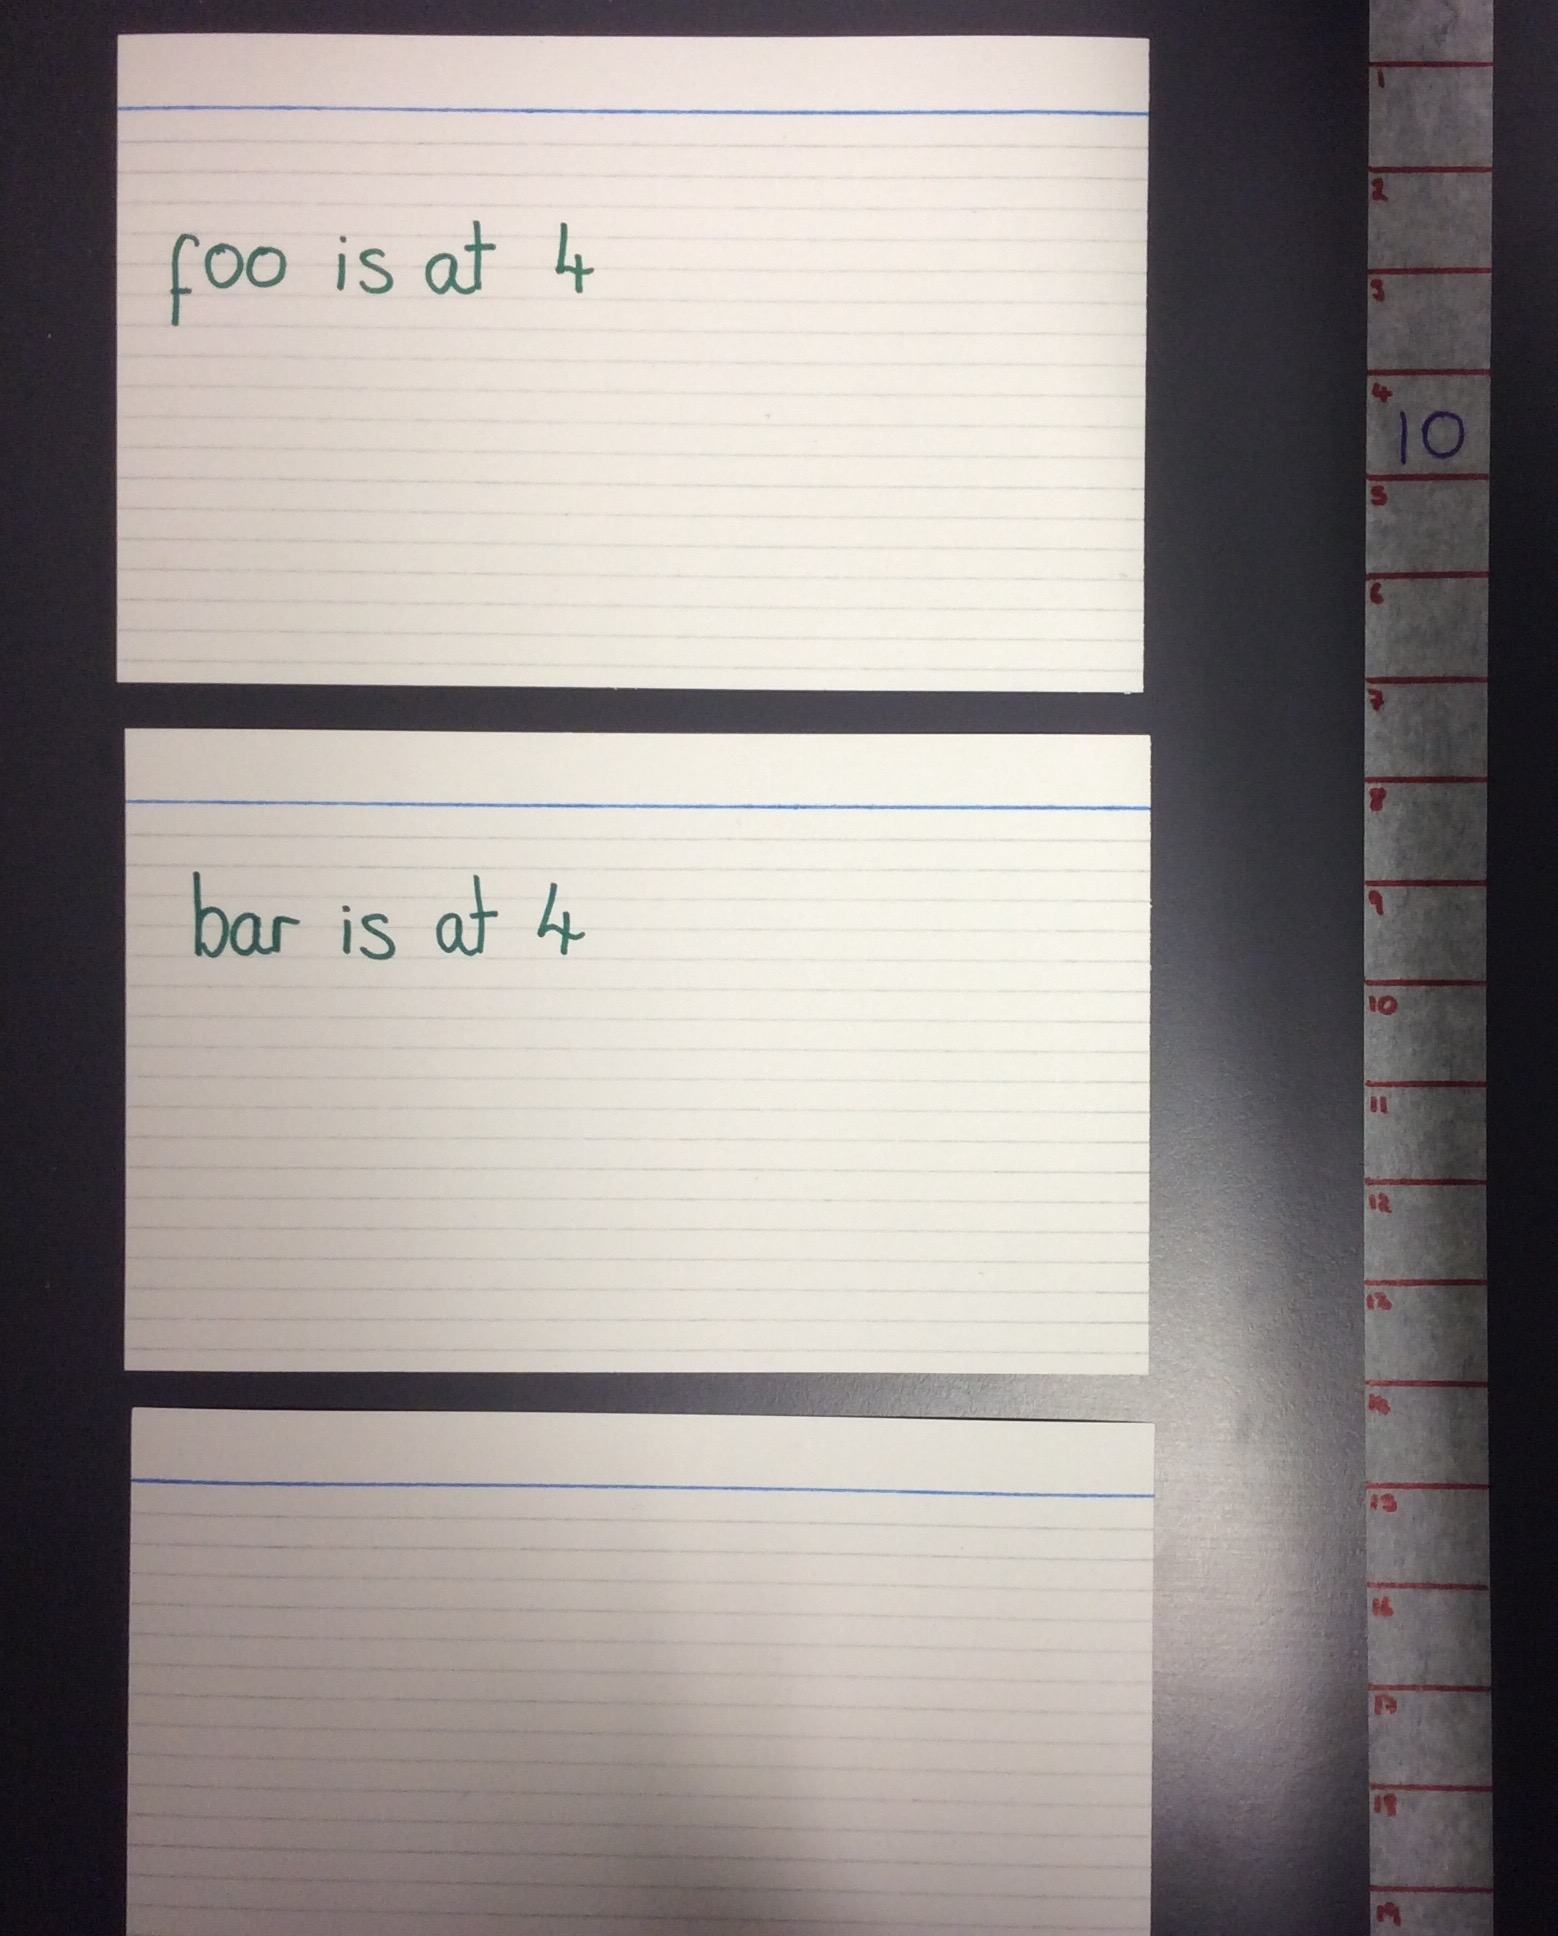 foo is at 4
bar is at 4
1
2
3
4
10
5
6
7
8
9
10
11
12
13
14
15
16
17
18
19